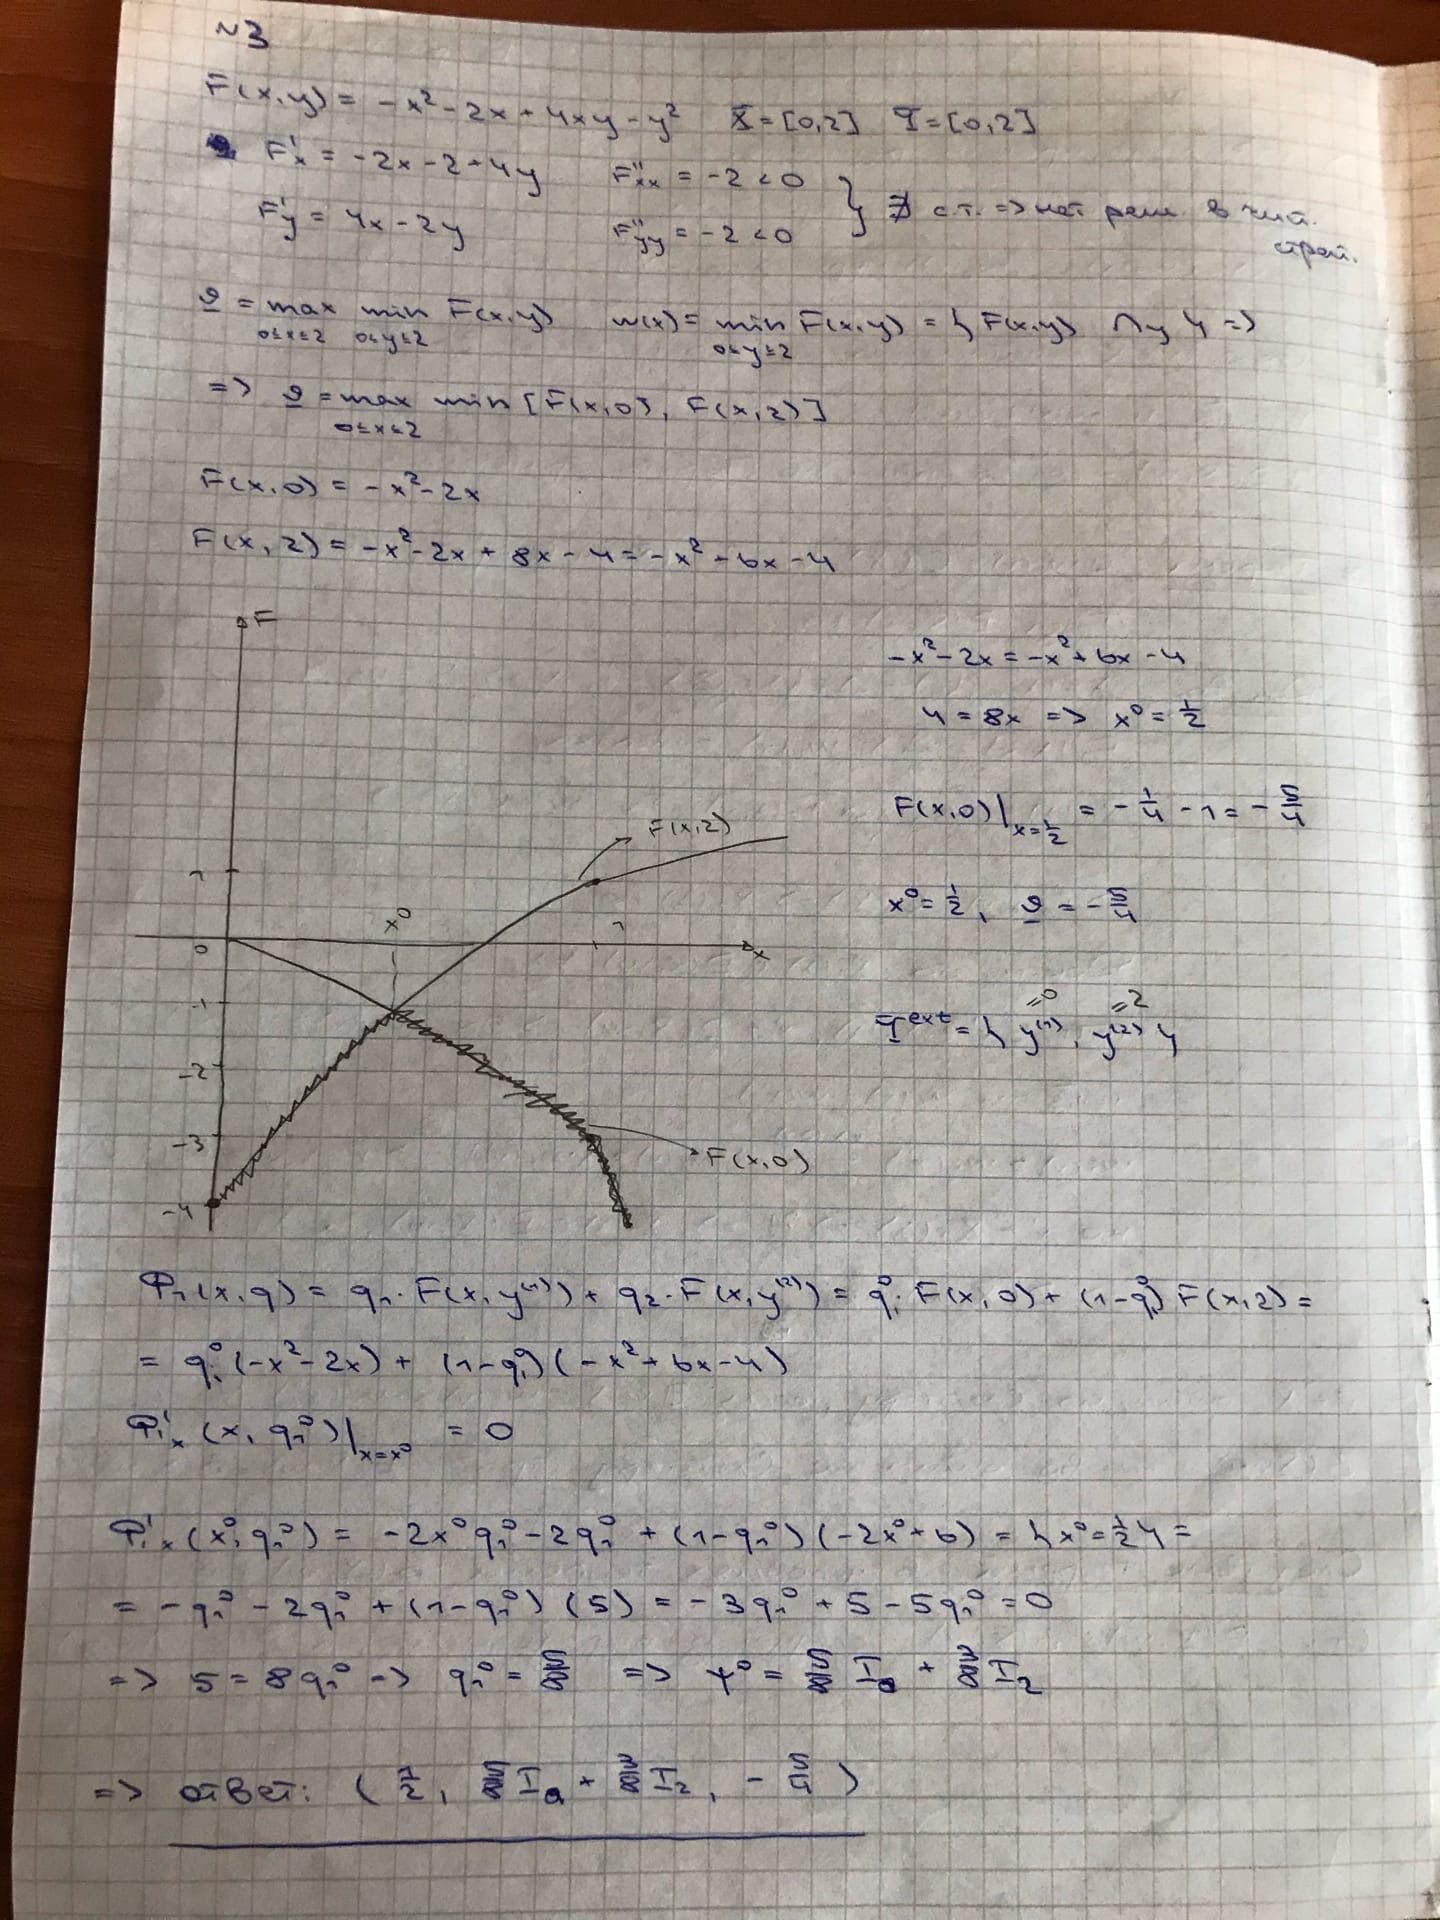 ~3
F(x,y) = -x² - 2x + 4xy - y²   X = [0,2]   Y = [0,2]
F'x = -2x - 2 + 4y   F''xx = -2 < 0
F'y = 4x - 2y   F''yy = -2 < 0   } ∄ с.т. => нет реш. в чист. страт.
v = max min F(x,y)   w(x) = min F(x,y) = { F(x,y) ∩y } =>
0≤x≤2   0≤y≤2   0≤y≤2
=> v = max min [F(x,0), F(x,2)]
0≤x≤2
F(x,0) = -x² - 2x
F(x,2) = -x² - 2x + 8x - 4 = -x² + 6x - 4
F
-x² - 2x = -x² + 6x - 4
4 = 8x => x⁰ = 1/2
F(x,0)|x=1/2 = -1/4 - 1 = -5/4
F(x,2)
1
x⁰
x⁰ = 1/2, v = -5/4
0
1
x
-1
=0   =2
Y^ext = { y⁽¹⁾, y⁽²⁾ }
-2
-3
F(x,0)
-4
Φ₁(x,q) = q₁·F(x,y⁽¹⁾) + q₂·F(x,y⁽²⁾) = q₁⁰ F(x,0) + (1-q₁⁰) F(x,2) =
= q₁⁰(-x²-2x) + (1-q₁⁰)(-x²+6x-4)
Φ₁'x (x, q₁⁰)|x=x⁰ = 0
Φ₁'x (x⁰, q₁⁰) = -2x⁰q₁⁰ - 2q₁⁰ + (1-q₁⁰)(-2x⁰+6) = { x⁰ = 1/2 } =
= -q₁⁰ - 2q₁⁰ + (1-q₁⁰)(5) = -3q₁⁰ + 5 - 5q₁⁰ = 0
=> 5 = 8q₁⁰ => q₁⁰ = 5/8 => ψ⁰ = 5/8 I₀ + 3/8 I₂
=> ответ: (1/2, 5/8 I₀ + 3/8 I₂, -5/4)